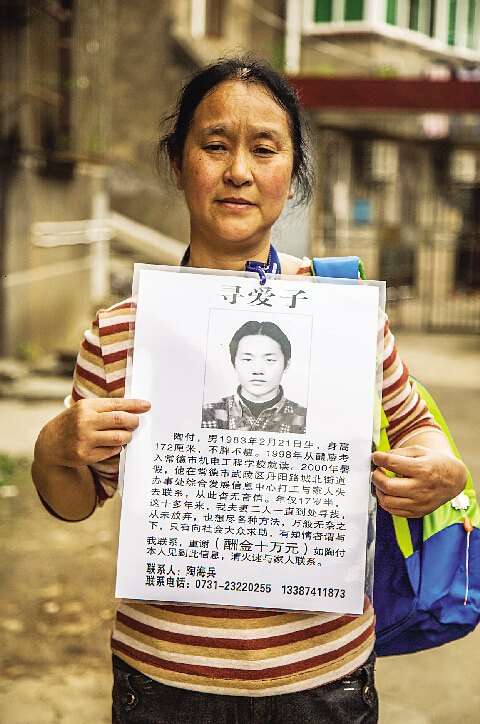 寻爱子
陶付，男1983年2月21日生，身高
172厘米，不胖不瘦。1998年从醴陵考
入常德市机电工程学校就读。2000年暑
假，他在常德市武陵区丹阳路城北街道
办事处综合发展信息中心打工与家人失
去联系，从此杳无音信。年仅17岁半，
这十多年来，我夫妻二人一直到处寻找，
从未放弃，也想尽各种方法，万般无奈之
下，只有向社会大众求助，有知情者请与
我联系，重谢（酬金十万元）如陶付
本人见到此信息，请火速与家人联系。
联系人：陶海兵
联系电话：0731-23220255 13387411873